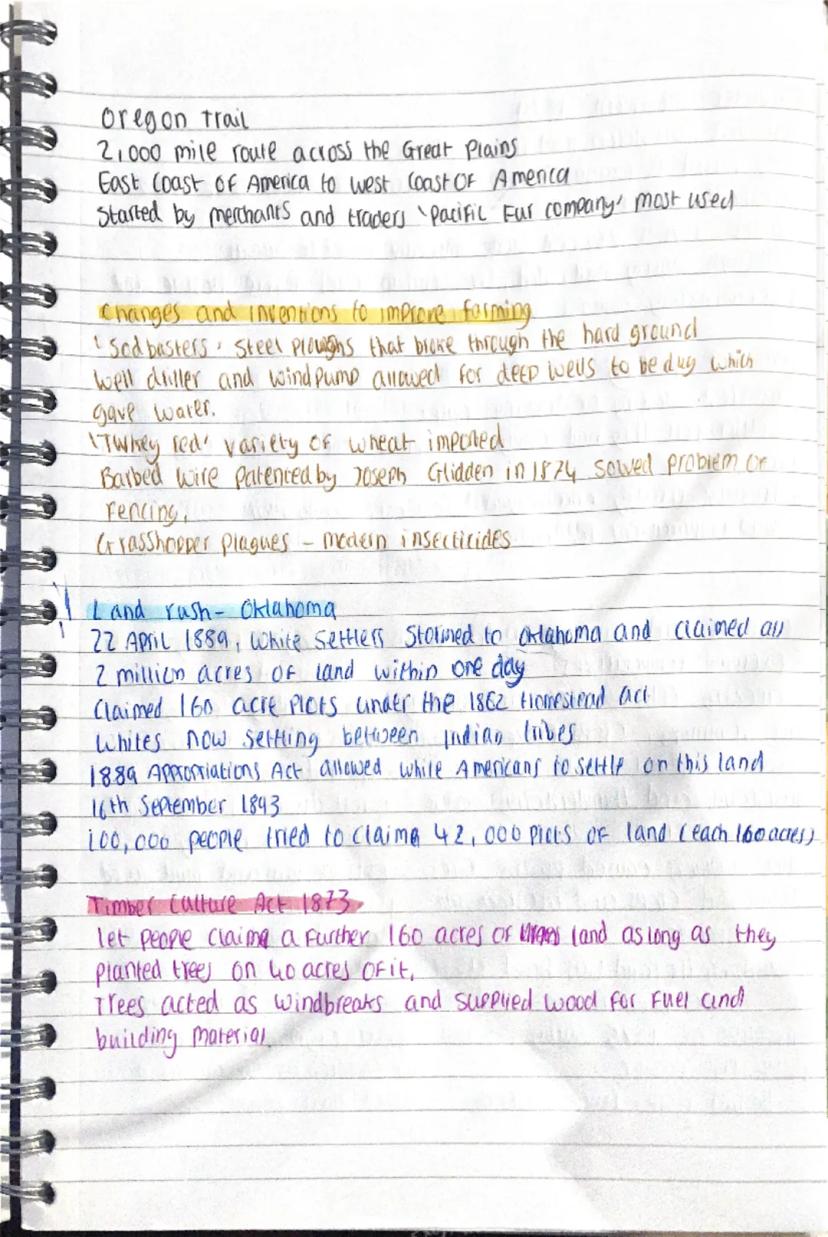 Oregon Trail
2,000 mile route across the Great Plains
East Coast of America to West Coast of America
Started by merchants and traders 'Pacific Fur company' most used
Changes and inventions to improve farming
'Sodbusters' steel ploughs that broke through the hard ground
Well driller and windpump allowed for deep wells to be dug which
gave water.
'Turkey red' variety of wheat imported
Barbed wire patented by Joseph Glidden in 1874 solved problem of
fencing.
Grasshopper plagues - modern insecticides
! Land rush - Oklahoma
22 April 1889, white settlers stormed to Oklahoma and claimed all
2 million acres of land within one day
Claimed 160 acre plots under the 1862 Homestead act
Whites now settling between Indian tribes
1889 Appropriations Act allowed white Americans to settle on this land
16th September 1893
100,000 people tried to claim 42,000 plots of land (each 160 acres)
Timber Culture Act 1873
let people claim a further 160 acres of land as long as they
planted trees on 40 acres of it.
Trees acted as windbreaks and supplied wood for fuel and
building material.